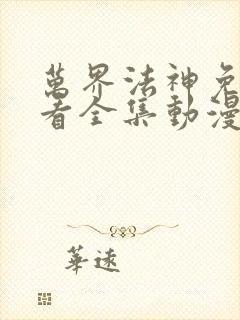 萬界法神免
看全集動漫
華遠